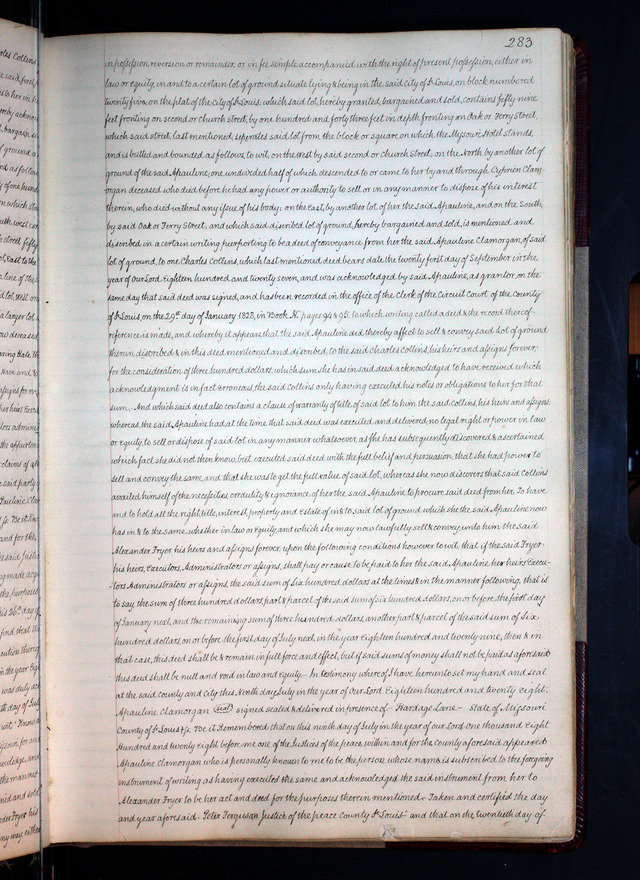 283
in possession, reversion or remainder, or in fee simple accompanied with the right of present possession, either in
law or equity, in and to a certain lot of ground situate lying & being in the said city of St Louis, on block numbered
twenty five, on the plat of the city of St Louis; which said lot, hereby granted, bargained and sold, contains fifty nine
feet fronting on second or Church Street, by one hundred and forty three feet in depth fronting on Oak or Ferry Street,
which said street, last mentioned, seperates said lot from the block or square on which the Missouri Hotel stands
and is butted and bounded as follows, to wit, on the West by said second or Church Street, on the North by another lot of
ground of the said Apauline, one undivided half of which descended to or came to her by and through Cyprien Clam-
organ deceased who died before he had any power or authority to sell or in any manner to dispose of his interest
therein, who died without any issue of his body; on the East, by another lot of her the said Apauline, and on the South,
by said Oak or Ferry Street, and which said discribed lot of ground, hereby bargained and sold, is mentioned and
discribed in a certain writing purporting to be a deed of conveyance from her the said Apauline Clamorgan of said
lot of ground, to one Charles Collins, which last mentioned deed bears date the twenty first day of September in the
year of Our Lord Eighteen hundred and twenty seven, and was acknowledged by said Apauline, as grantor on the
same day that said deed was signed, and has been recorded in the office of the Clerk of the Circuit Court of the County
of St Louis on the 29th day of January 1828, in Book N. pages 94 & 95. to which writing called a deed & the record thereof
reference is made, and whereby it appears that the said Apauline did thereby affect to sell & convey said Lot of ground
therein discribed & in this deed mentioned and discribed to the said Charles Collins, his heirs and assigns forever,
for the consideration of three hundred dollars, which sum she has in said deed acknowledged to have received which
acknowledgment is in fact erroneous, the said Collins only having executed his notes or obligations to her for that
sum,- And which said deed also contains a clause of warranty of title of said lot to him the said Collins, his heirs and assigns;
whereas the said Apauline had at the time that said deed was executed and delivered, no legal right or power in law
or equity, to sell or dispose of said lot in any manner whatsoever, as she has subsequently discovered & ascertained
which fact she did not then know, but executed said deed with the full belief and persuasion, that she had power to
sell and convey the same, and that she was to get the full value of said lot; whereas she now discovers that said Collins
availed himself of the necessities, credulity & ignorance of her the said Apauline to procure said deed from her, To have
and to hold all the right, title, interest, property and Estate of in & to said lot of ground which she the said Apauline now
has in & to the same, whether in law or equity, and which she may now lawfully sell & convey, unto him the said
Alexander Fryer his heirs and assigns forever, upon the following conditions however to wit, that if the said Fryer
his heirs, Executors, Administrators or assigns, shall pay or cause to be paid to her the said Apauline her heirs Execu-
tors Administrators or assigns, the said sum of six hundred dollars at the times & in the manner following, that is
to say the sum of three hundred dollars, part & parcel of the said sum of six hundred dollars, on or before the first day
of January next, and the remaining sum of three hundred dollars, another part & parcel of the said sum of Six
hundred dollars, on or before the first day of July next, in the year Eighteen hundred and twenty nine, then & in
that case, this deed shall be & remain in full force and effect, but if said sums of money shall not be paid as aforesaid
this deed shall be null and void in law and Equity.- In testimony whereof I have hereunto set my hand and seal
at the said county and city this Ninth day July in the year of Our Lord Eighteen hundred and twenty eight.
Apauline Clamorgan (seal) signed sealed & delivered in presence of - Hardage Lane.- State of Missouri
County of St Louis Sc, Be it Remembered that on this ninth day of July in the year of our Lord one thousand Eight
Hundred and twenty eight before me one of the Justices of the peace within and for the County aforesaid appeared
Apauline Clamorgan who is personally known to me to be the person whose name is subscribed to the foregoing
instrument of writing as having executed the same and acknowledged the said instrument from her to
Alexander Fryer to be her act and deed for the purposes therein mentioned. Taken and certified the day
and year aforesaid. Peter Ferguson Justice of the peace County St Louis- and that on the twentieth day of